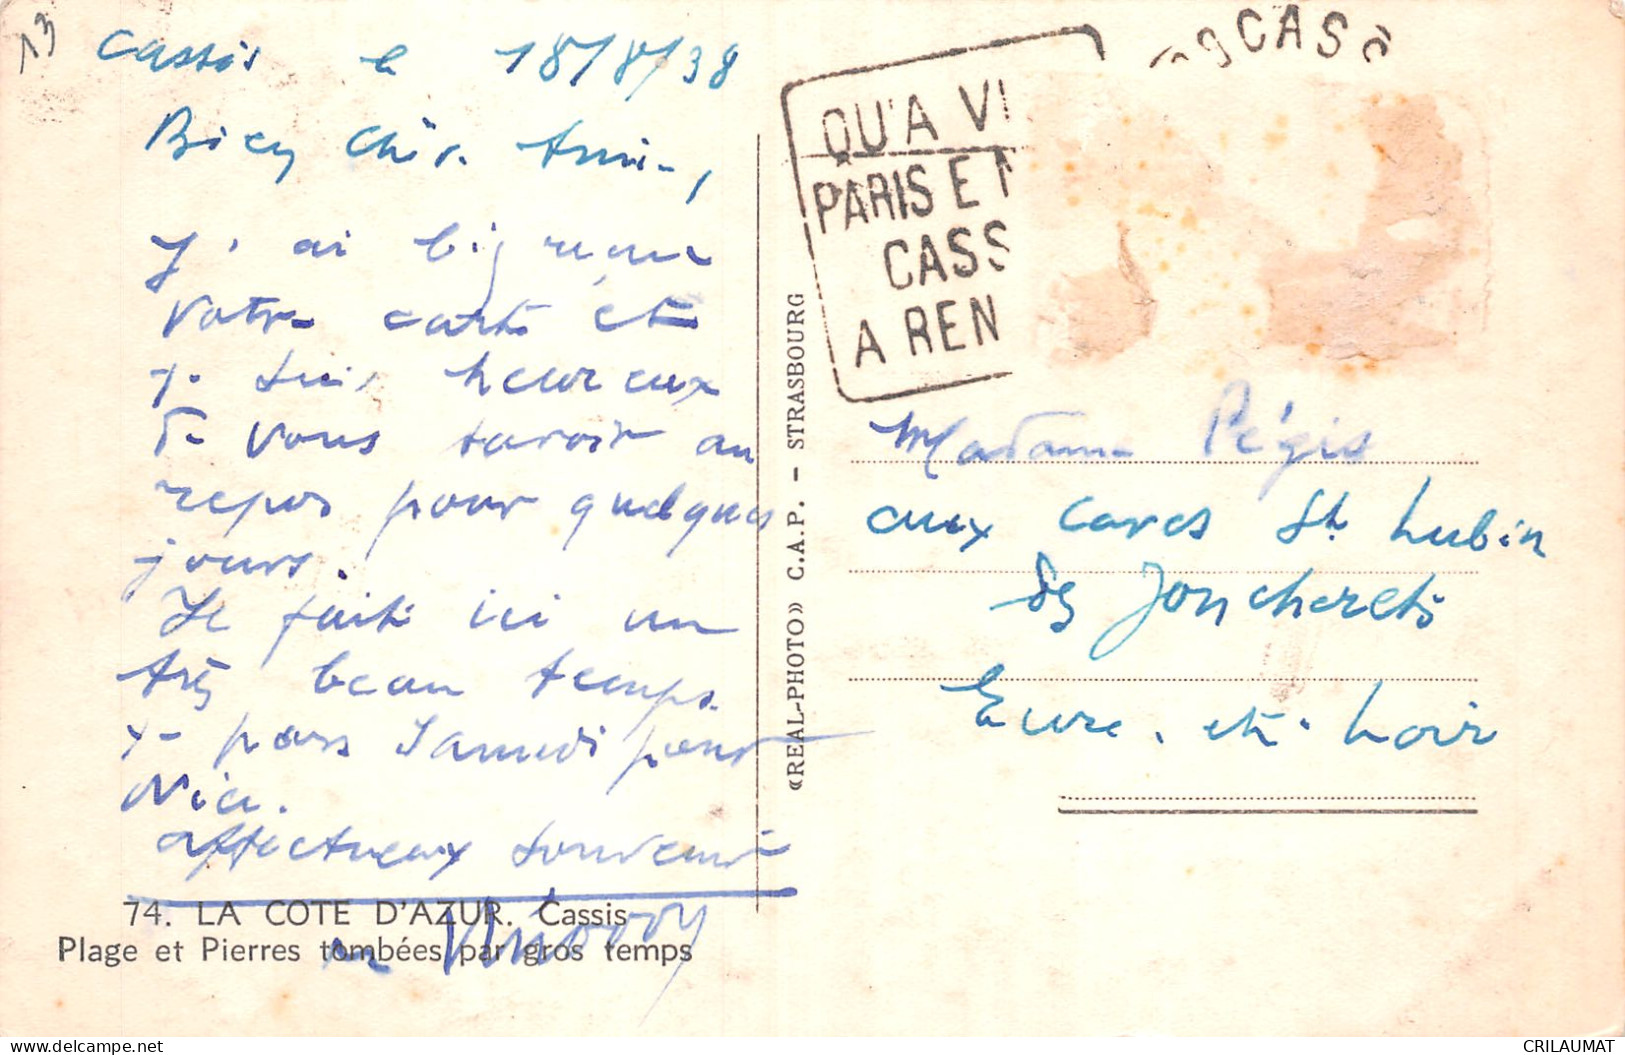 13
Cassis le 18/8/38
Bien chère Amie,
J'ai bien reçu
votre carte et
je suis heureux
de vous savoir au
repos pour quelques
jours.
Il fait ici un
très beau temps.
je pars Samedi pour
Nice.
affectueux souvenir
74. LA COTE D'AZUR. Cassis
Plage et Pierres tombées par gros temps
«REAL-PHOTO» C.A.P. - STRASBOURG
CASS
QU'A VI
PARIS ET N
CASS
A REN
Madame Régis
aux Caves St. Lubin
des Joncherets
Eure-et-Loir
CRILAUMAT